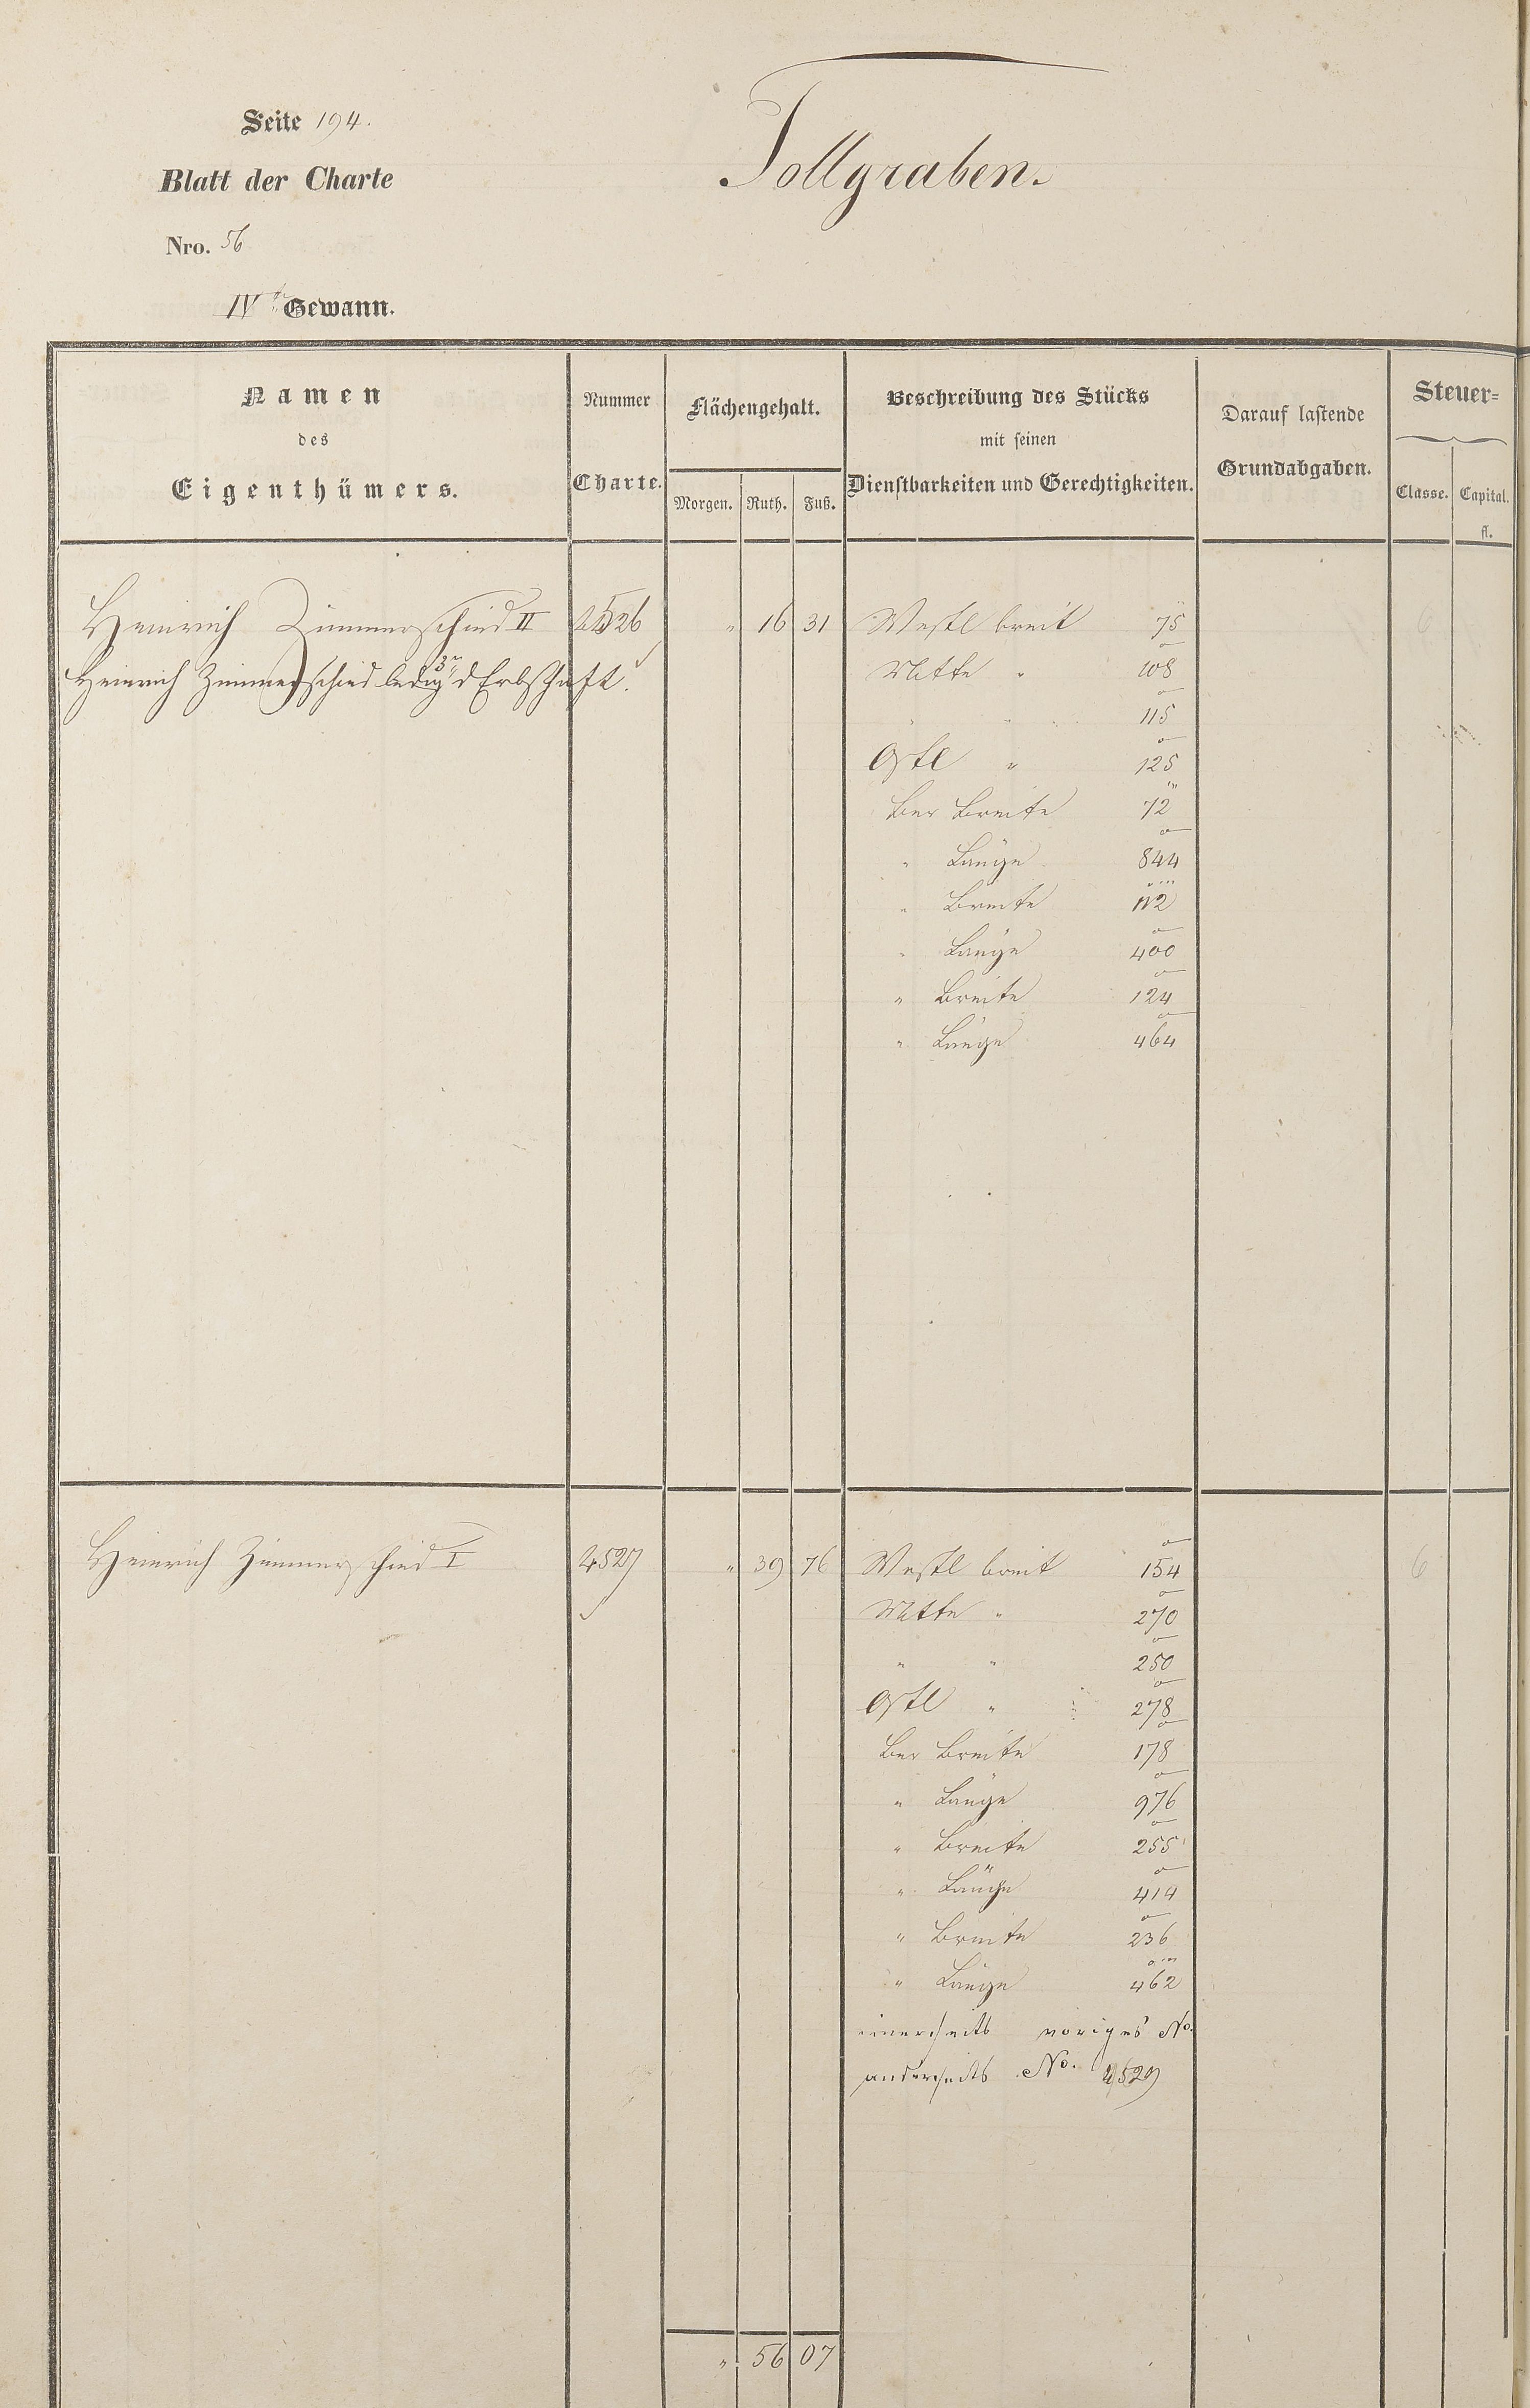 Seite 194.
Tollgraben.
Blatt der Charte
Nro. 56
IVte Gewann.
Namen
des
Eigenthümers.
Nummer
Charte.
Flächengehalt.
Morgen. Ruth. Fuß.
Beschreibung des Stücks
mit seinen
Dienstbarkeiten und Gerechtigkeiten.
Darauf lastende
Grundabgaben.
Steuer=
Classe. Capital.
fl.
Heinrich Zimmerschied II 4526 " 16 31 Westl breit 75 6
Heinrich Zimmerschied ledig 3r d Erbschaft. Mitte " 108
" " 115
Ostl " 125
Ber Breite 72
" Länge 844
" Breite 112
" Länge 400
" Breite 124
" Länge 464
Heinrich Zimmerschied I 4527 " 39 76 Westl breit 154 6
Mitte " 270
" " 250
Ostl " 278
Ber Breite 178
" Länge 976
" Breite 255
" Länge 414
" Breite 236
" Länge 462
einerseits voriges No.
anderseits No. 4529
" 56 07